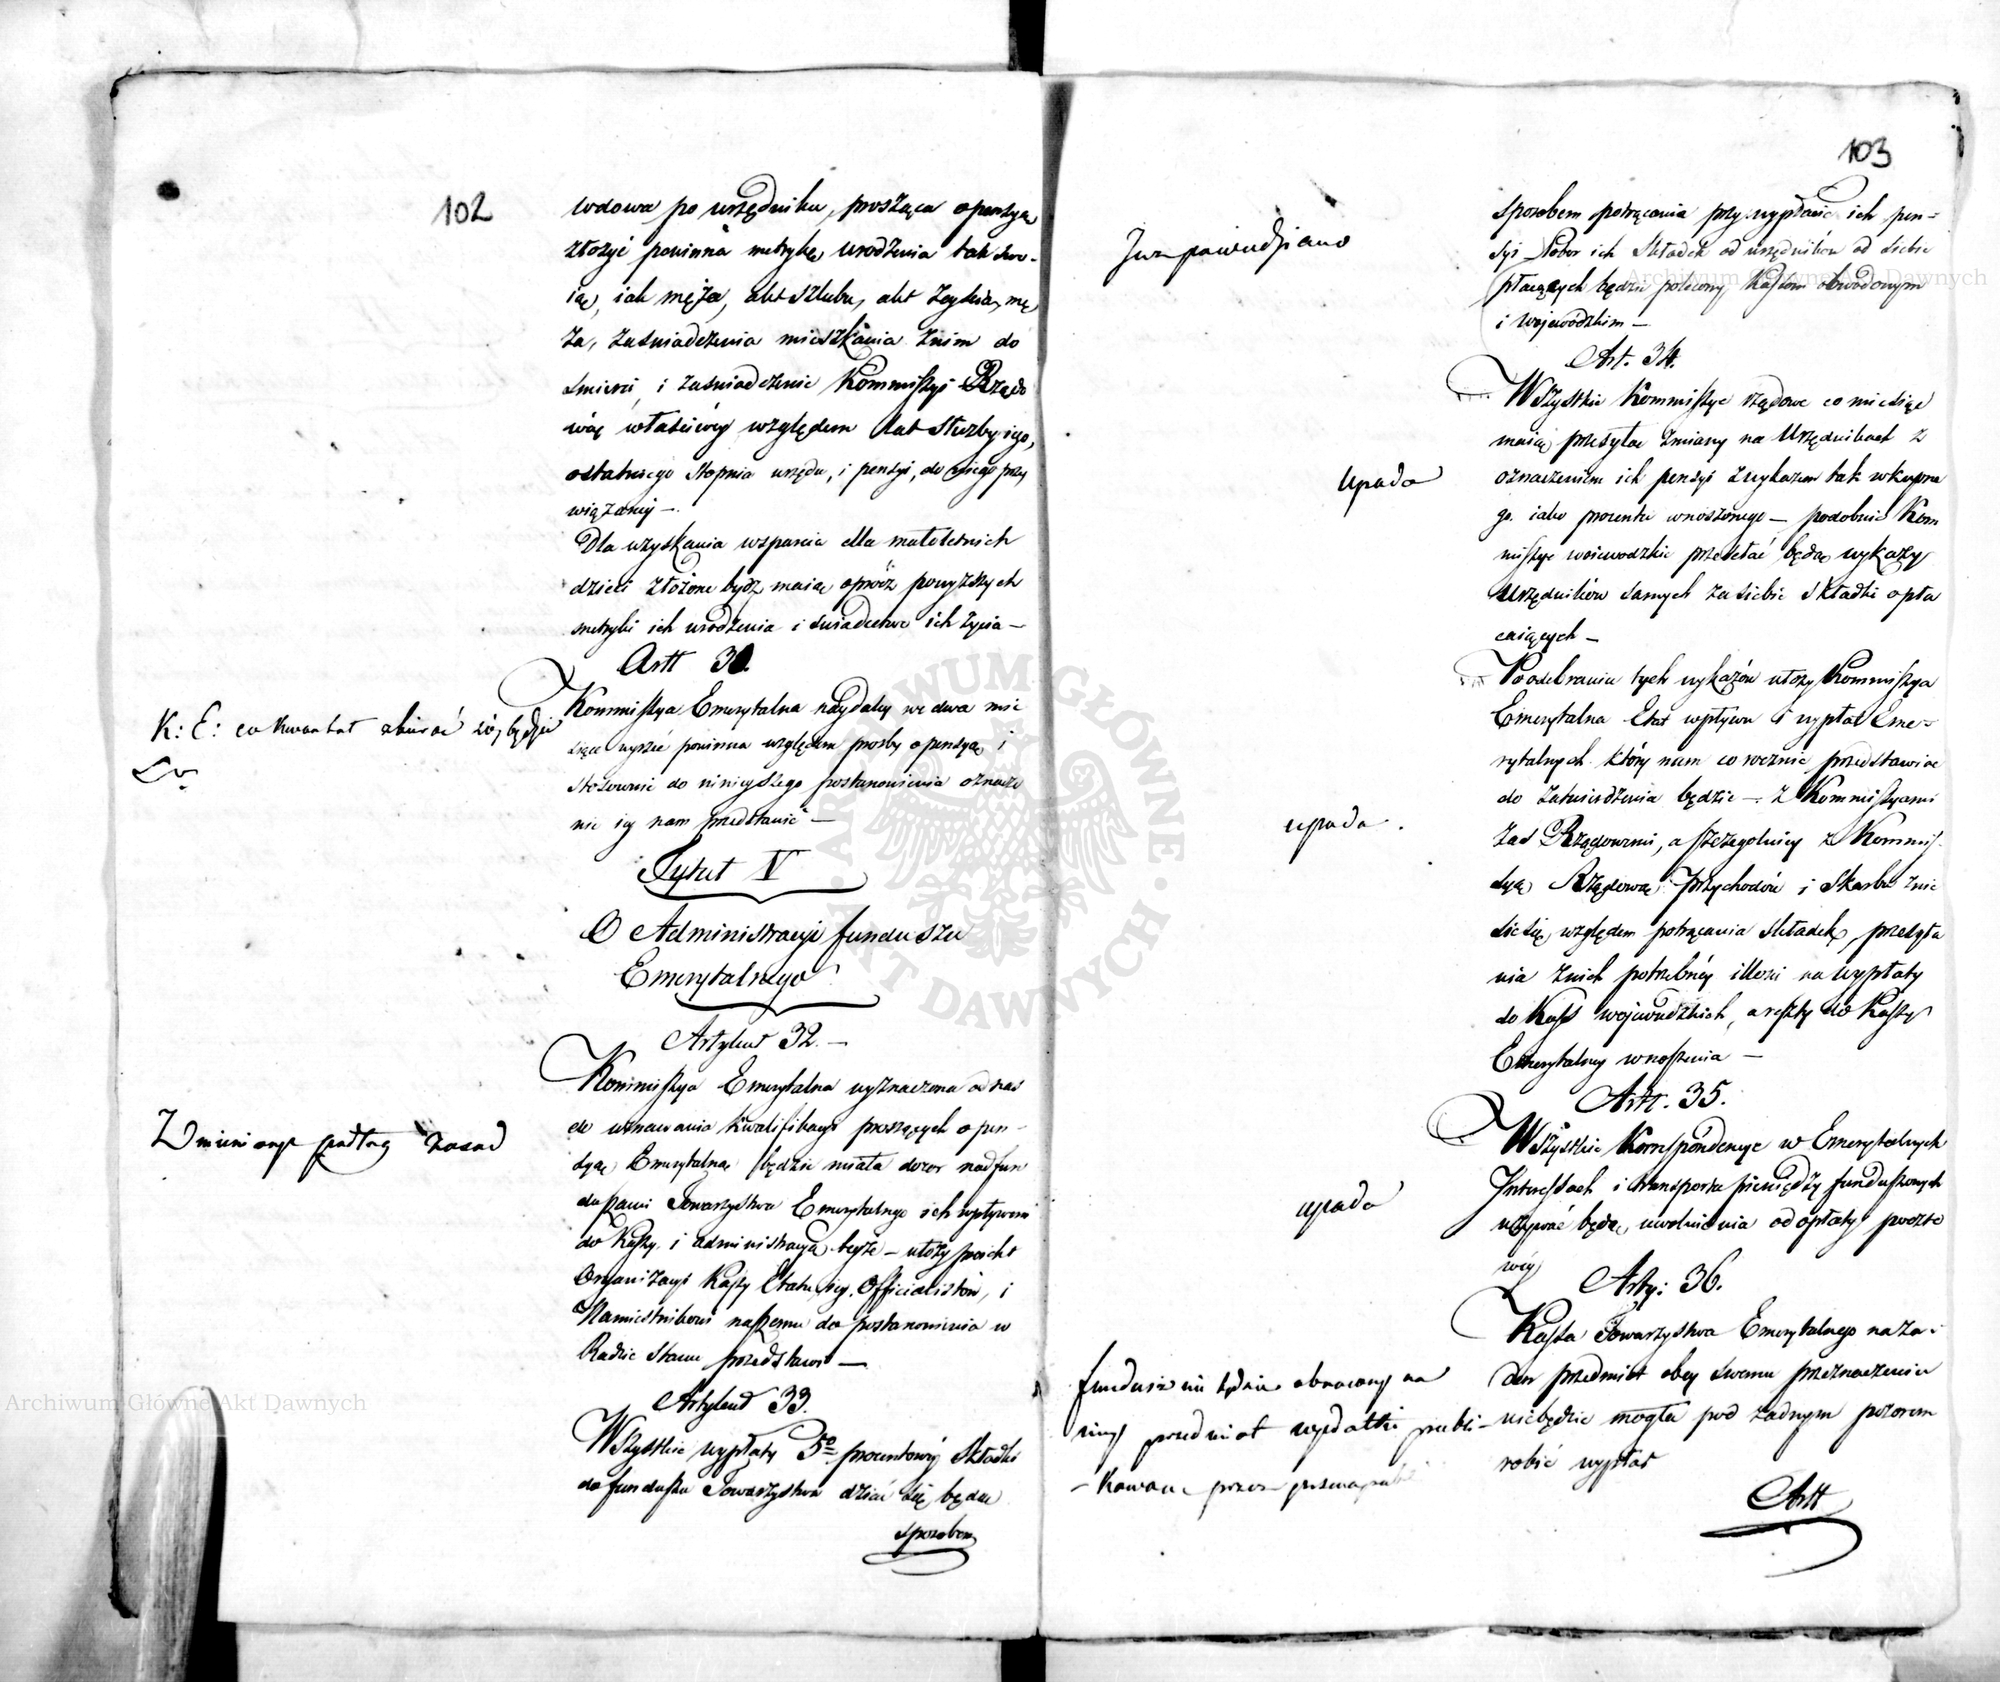 102
wdowa po urzędniku, prosząca o pensyą
złożyć powinna metrykę urodzenia tak swo-
ią, iak męża, akt szlubu, akt zeyścia mę
ża, zaświadczenia mieszkania znim do
śmierci, i zaświadczenie Kommissyi Rządo
wéy właściwéy względem lat służby iego,
ostatniego stopnia urzędu, i pensyi, do niego przy
wiązanéy —
Dla uzyskania wsparcia dla małoletnich
dzieci złożone bydź maią oprócz powyższych
metryki ich urodzenia i świadectwo ich życia —
Artt 31.
Kommissya Emerytalna naydaléy we dwa mie
siące wyrzéc powinna względem prośby o pensyą i
stosownie do ninieyszego postanowienia oznacze
nie iéy nam przedstawić —
K: E: co kwartał zbierać się będzie
Tytuł V
O Administracyi funduszu
Emerytalnego
Artykuł 32. —
Kommissya Emerytalna wyznaczona od nas
do uznawania kwalifikacyi proszących o pen-
syą Emerytalną będzie miała dozor nad fun
duszami Towarzystwa Emerytalnego ich wpływem
do Kassy i administracyą teyże — ułoży proiekt
Organizacyi Kassy Etatu iéy Officialistów, i
Namiestnikowi naszemu do postanowienia w
Radzie Stanu przedstawi —
Zmienione podług zasad
Artykuł 33.
Wszystkie wypłaty 5o procentowéy składki
do funduszu Towarzystwa dziać się będą
sposobem
103
sposobem potrącania przy wypłacie ich pen-
syi — Pobor ich składek od urzędników od siebie
płacących będzie polecony Kassom obwodowym
i Wojewodzkim —
Już powiedziano
Art. 34.
Wszystkie Kommissye rządowe co miesiąc
maią przesyłać zmiany na Urzędnikach z
oznaczeniem ich pensyi z wykazem tak wkupne
go iako procentu wnoszonego — podobnie Kom
missye woiewodzkie przesełać będą wykazy
Urzędników samych za siebie składki opła
caiących —
upada
Po odebraniu tych wykazów ułoży Kommissya
Emerytalna Etat wpływu i wypłat Eme-
rytalnych który nam co rocznie przedstawiać
do zatwierdzenia będzie — z Kommissyami
zaś Rządowemi, a szczegolniéy z Kommis
syą Rządową Przychodów i Skarbu znie
sie się względem potrącania składek, przesyła
nia znich potrzebnéy illości na wypłaty
do Kass wojewodzkich, a reszty do Kassy
Emerytalnéy wnoszenia —
upada.
Artt. 35.
Wszystkie Korrespondencye w Emerytalnych
Interessach i transporta pieniędzy funduszowych
używać będą uwolnienia od opłaty poczto
wéy
upada
Arty: 36.
Kassa Towarzystwa Emerytalnego na ża-
den przedmiot obcy swemu przeznaczeniu
niebędzie mogła pod żadnym pozorem
robić wypłat
fundusz nie będzie obracany na
inny przedmiot wydatki publi-
Artt
Archiwum Główne Akt Dawnych
Archiwum Główne Akt Dawnych
ARCHIWUM GŁÓWNE · AKT DAWNYCH ·